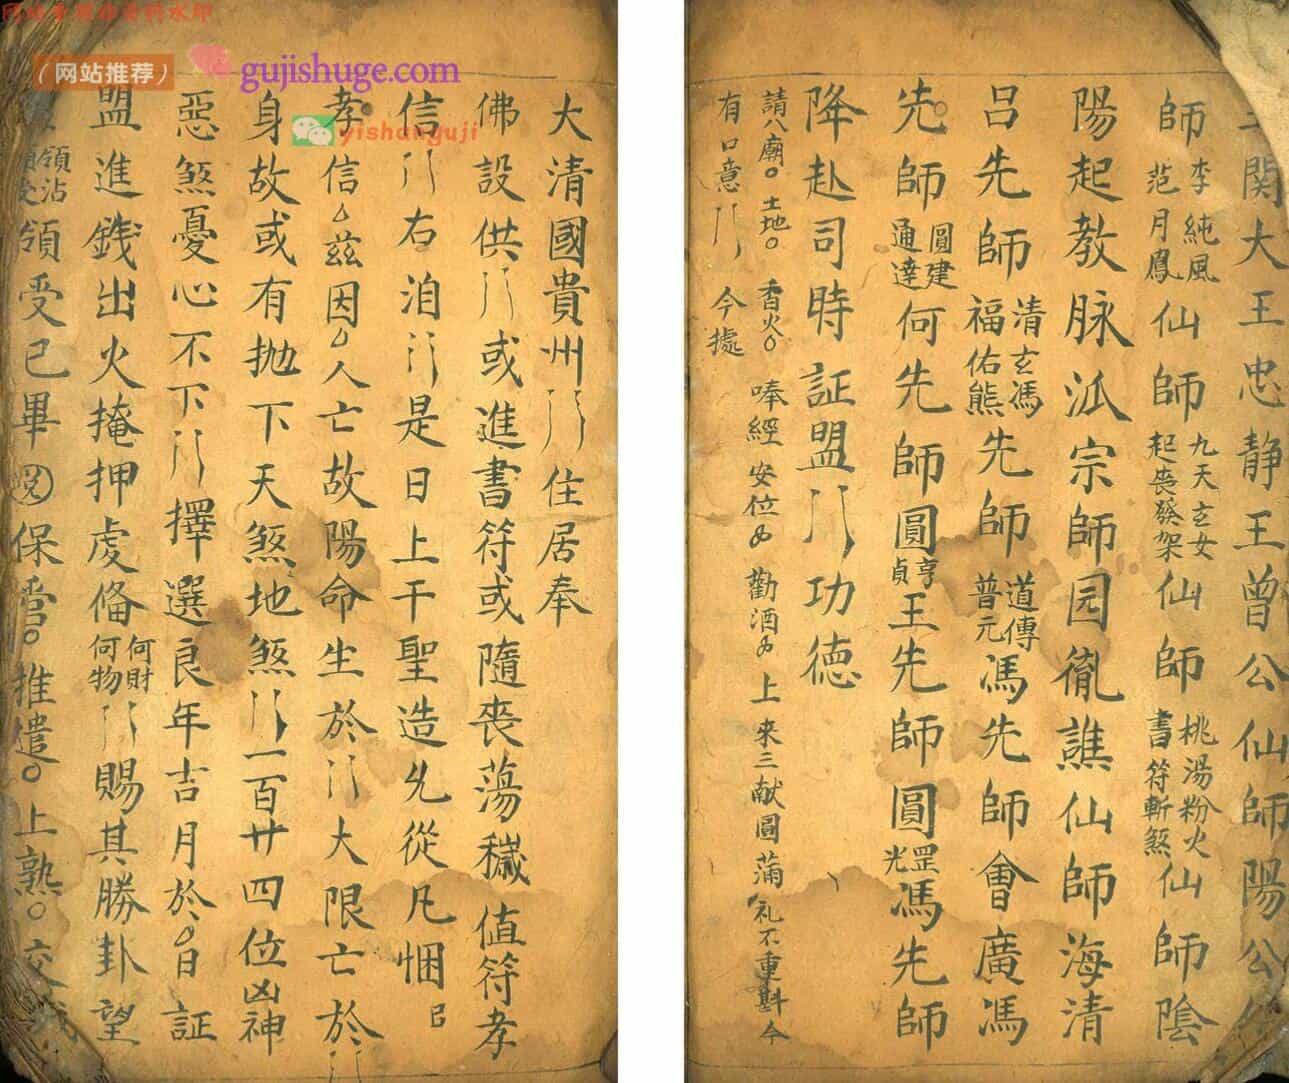 网站推荐
gujishuge.com
yishanguji
關大王忠静王曾公仙師陽公
師李純風范月鳳仙師九天玄女起丧發架仙師桃湯粉火書符斬煞仙師陰
陽起教脉派宗師园徹譙仙師海清
吕先師清玄馮福佑熊先師道傳普元馮先師會廣馮
先師圓建通達何先師圓亨貞王先師圓罡光馮先師
降赴司時証盟功德
請八廟土地香火唪經安位勸酒上来三献圓蒲礼不重斟今
有口意今據
大清國貴州住居奉
佛設供或進書符或隨丧蕩穢值符孝
信右洎是日上干聖造允從凡悃
孝信兹因人亡故陽命生於大限亡於
身故或有抛下天煞地煞一百廿四位凶神
惡煞憂心不下擇選良年吉月於日証
盟進錢出火掩押虔俻何財何物賜其勝卦望
領沾領受領受已畢保管推遣上熟交